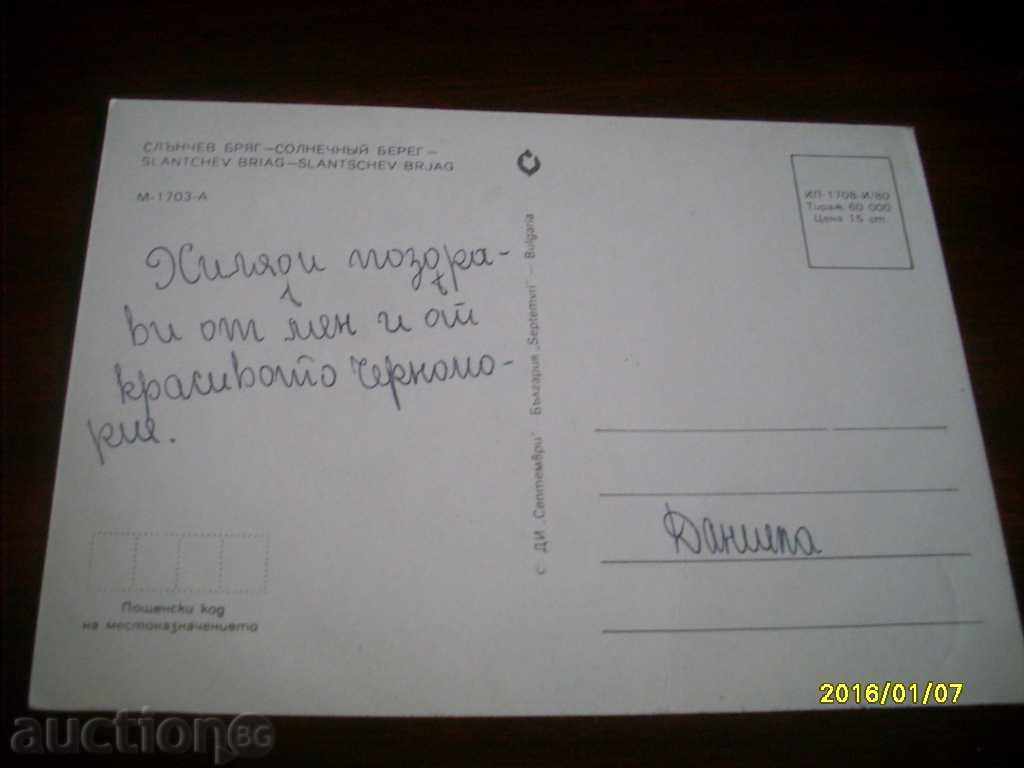 СЛЪНЧЕВ БРЯГ—СОЛНЕЧНЫЙ БЕРЕГ—
SLANTCHEV BRIAG—SLANTSCHEV BRJAG
М-1703-А
ИЛ-1708-И/80
Тираж 60 000
Цена 15 ст.
Хиляди поздра-
ви от мен и от
красивото Черномо-
рие.
© ДИ „Септември" България „Septemvri" — Bulgaria
Даниела
Пощенски код
на местоназначението
2016/01/07
auctionBG